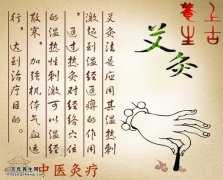 上古
养生
艾灸
艾灸法是应用其温热刺
激起到温经通痹的作用
。通过热灸对经络穴位
的温热性刺激可以温经
散寒。加强机体气血运
行。达到治疗目的。
中医灸疗